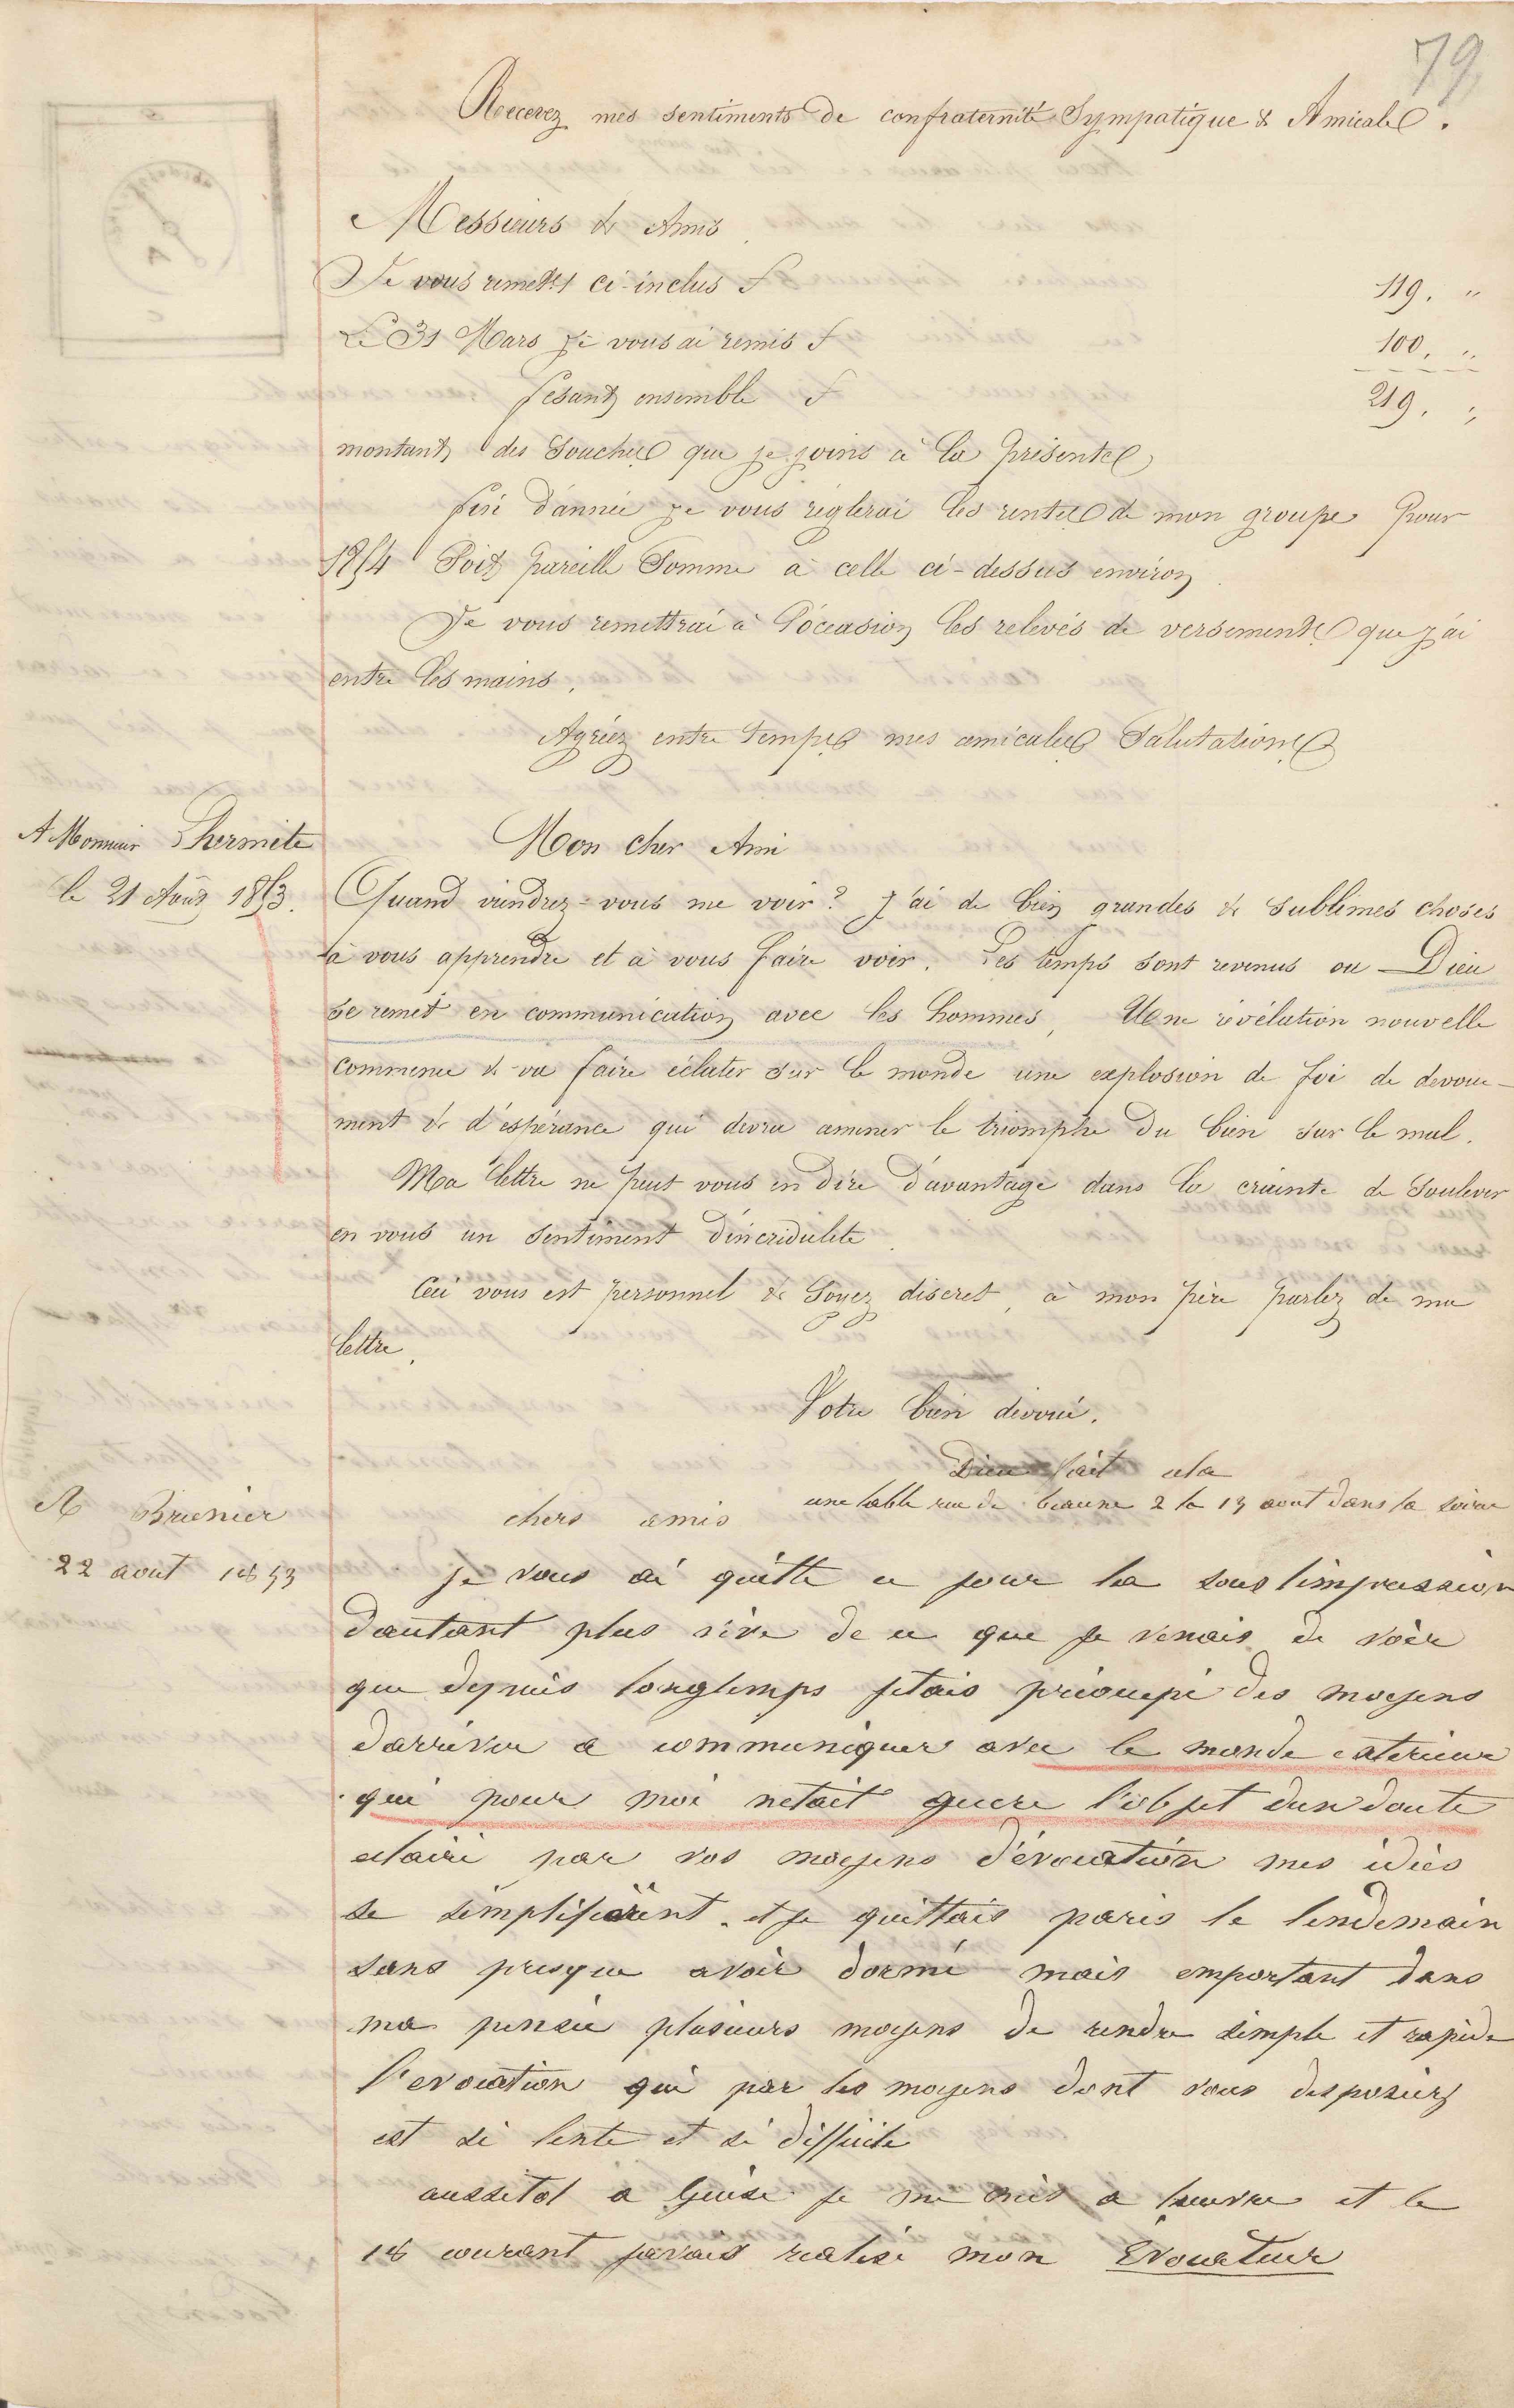 79
Recevez mes sentiments de confraternité Sympatique & Amicale.
Messieurs & Amis
Je vous remets ci-inclus f 119. "
Le 31 Mars je vous ai remis f 100. "
fesant ensemble f 219. "
montant des Souches que je joins à la présente
fin d'année je vous réglerai les rentes de mon groupe pour
1854 Soit pareille Somme à celle ci-dessus environ
Je vous remettrai à l'occasion les relevés de versements que j'ai
entre les mains.
Agréez entre temps mes amicales Salutations
A Monsieur Lhermite
le 21 Août 1853.
Mon cher Ami
Quand viendrez-vous me voir? J'ai de bien grandes & sublimes choses
à vous apprendre et à vous faire voir. Les temps sont revenus ou Dieu
se remet en communication avec les hommes, Une révélation nouvelle
commence & va faire éclater sur le monde une explosion de foi de devoue-
ment & d'espérance qui devra amener le triomphe du bien sur le mal.
Ma lettre ne peut vous en dire d'avantage dans la crainte de soulever
en vous un sentiment d'incrédulité
Ceci vous est personnel & Soyez discret, à mon père parlez de ma
lettre.
Votre bien dévoué.
A Brunier
22 aout 1853
Dieu fait cela
une table rue de beaune 2 le 13 aout dans la soirée
chers amis
je vous ai quitté ce jour la sous limpression
dautant plus vive de ce que je venais de voir
que depuis longtemps jetais préoccupé des moyens
darriver a communiquer avec le monde exterieur
qui pour moi netait guere l'objet dun doute
eclairé par vos moyens d'évocation mes idées
se simplifièrent. et je quittais paris le lendemain
sans presque avoir dormi mais emportant dans
ma pensée plusieurs moyens de rendre simple et rapide
l'evocation qui par les moyens dont vous disposiez
est si lente et si difficile
aussitot a Guise je me mis a l'œuvre et le
18 courant javais realisé mon Evocateur